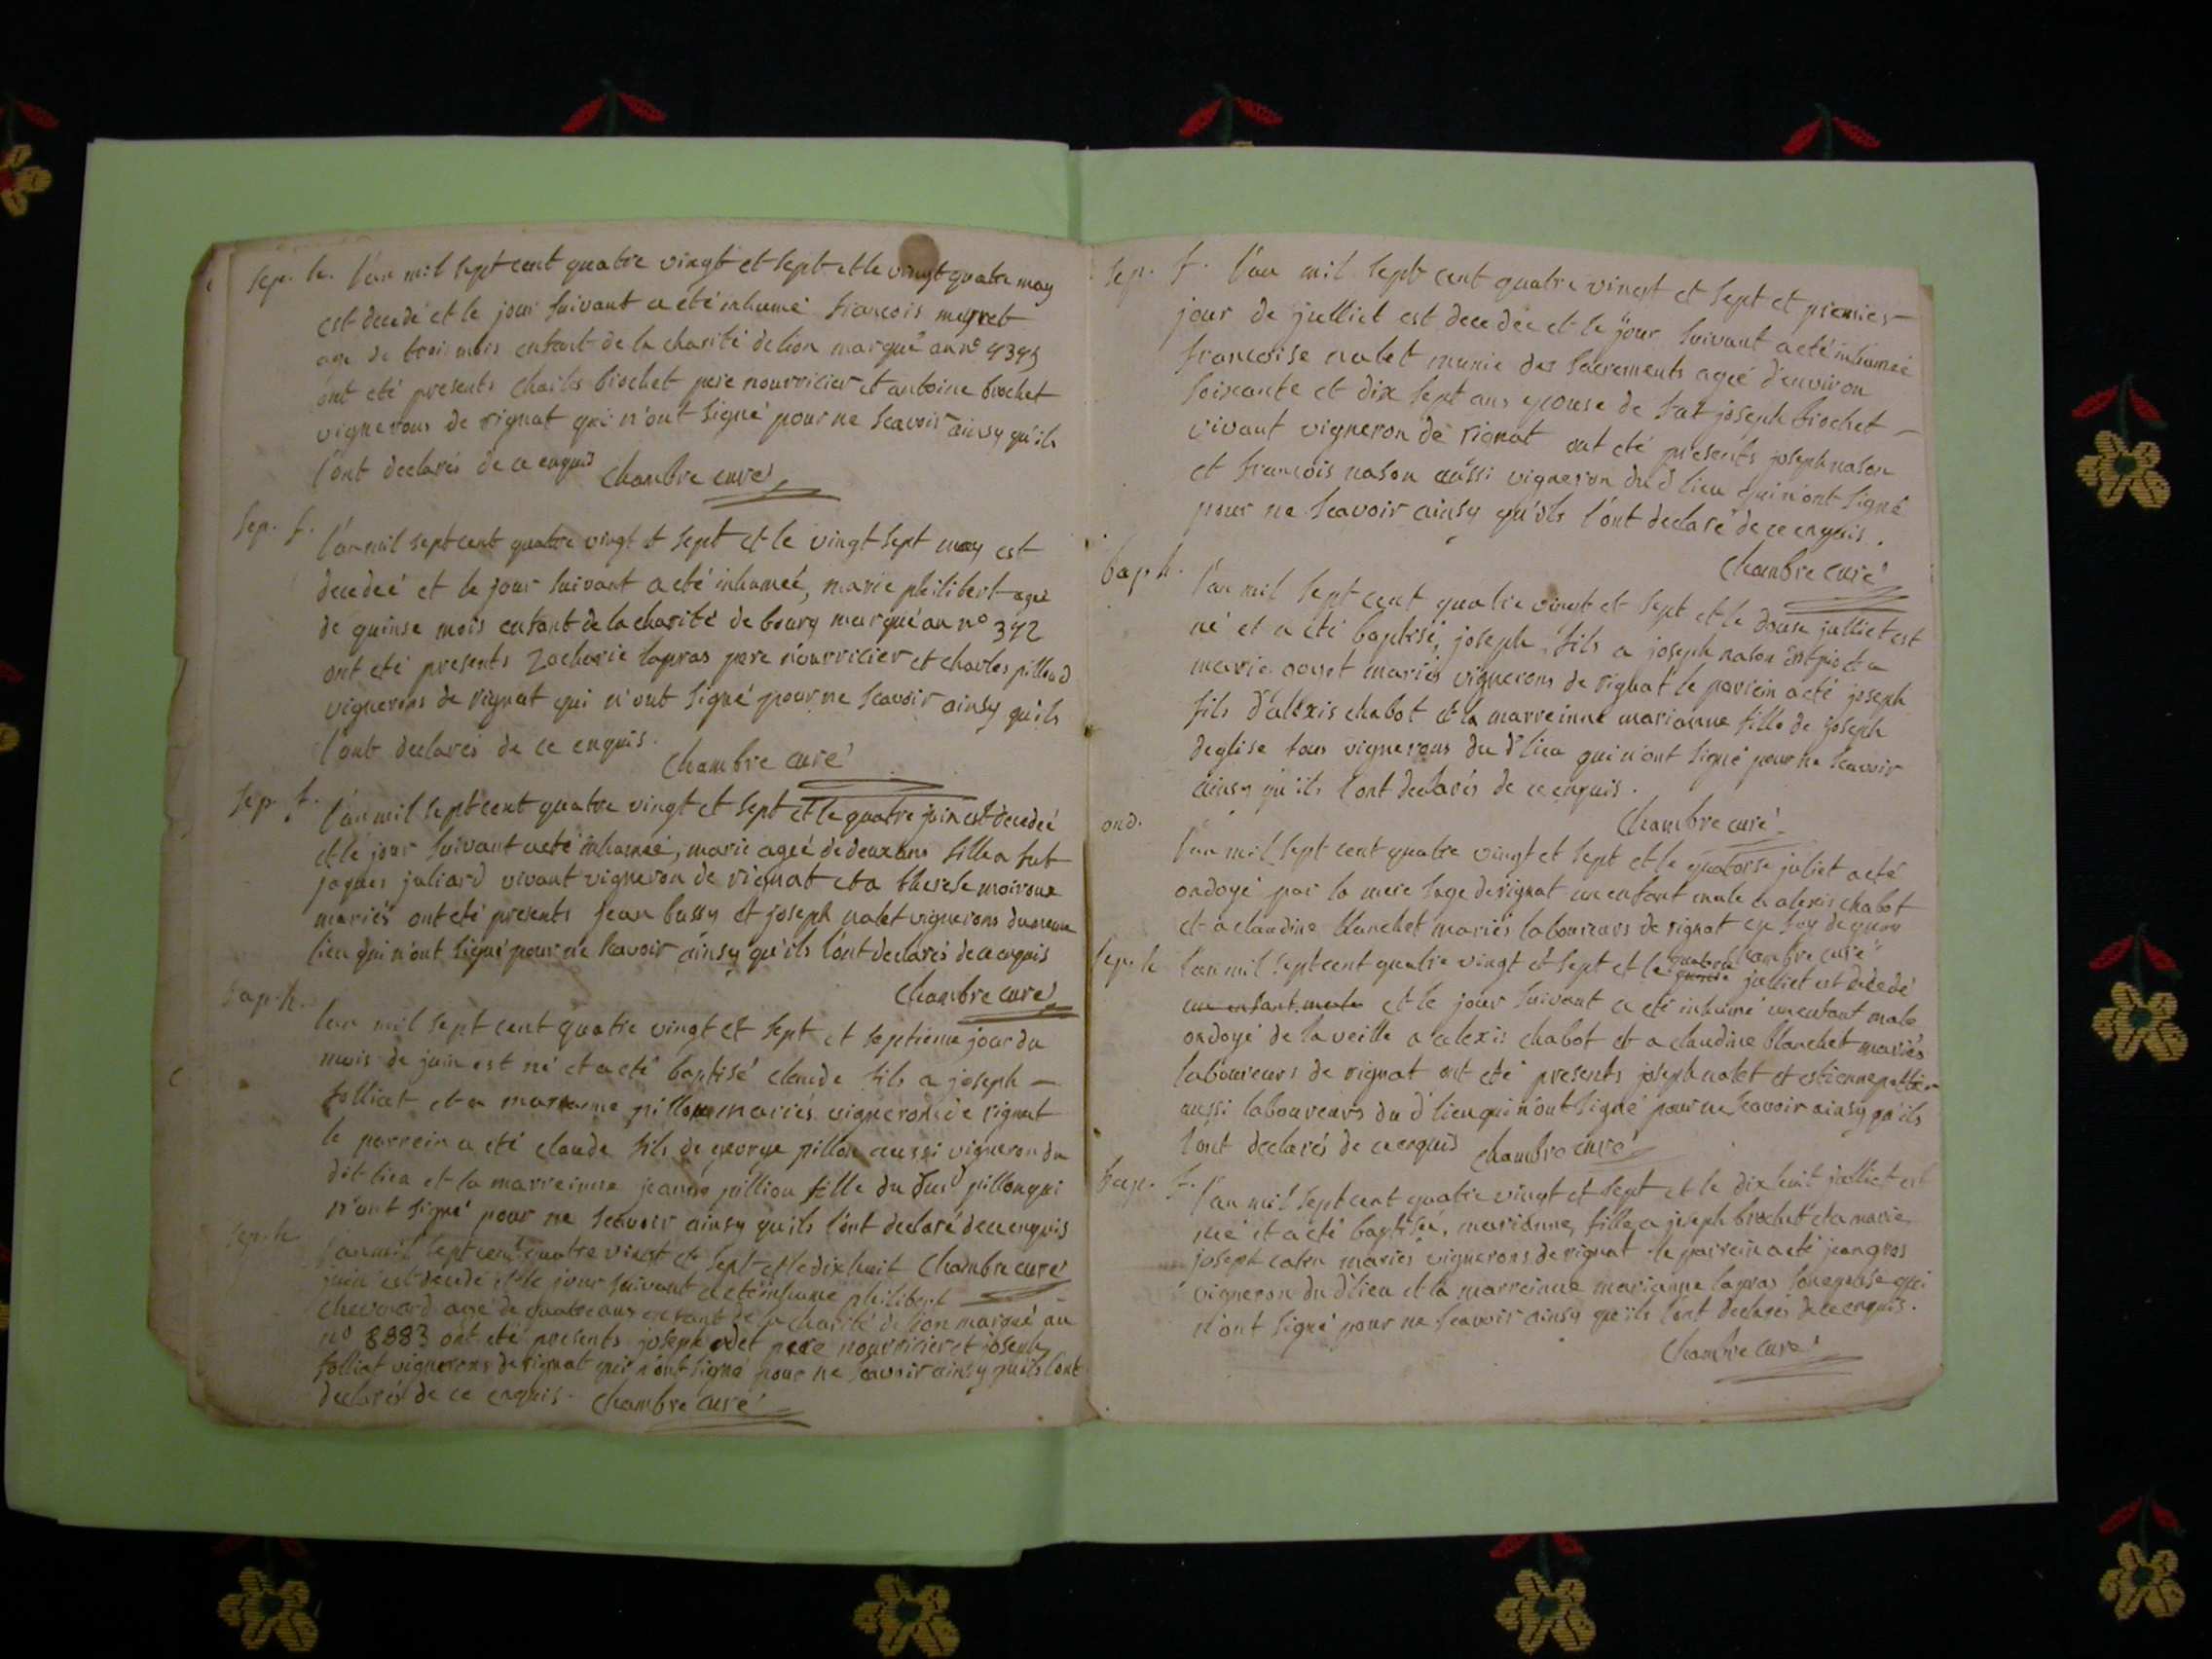 Sep. h. l'an mil sept cent quatre vingt et sept et le vingt quatre may
est decedé et le jour suivant a été inhumé francois
agé de trois mois enfant de la charité de lion marqué au nº
ont eté presents charles brochet pere nourricier et antoine brochet
vignerons de rignat qui n'ont signé pour ne scavoir ainsy qu'ils
l'ont declarés de ce enquis Chambre curé
Sep. f. l'an mil sept cent quatre vingt et sept et le vingt sept may est
decedeé et le jour suivant a eté inhumeé, marie philibert ageé
de quinse mois enfant de la charité de bourg marqué au nº 372
ont eté presents Zacharie lapras pere nourricier et charles pillond
vignerons de rignat qui n'ont signé pour ne scavoir ainsy qu'ils
l'ont declarés de ce enquis. Chambre curé
Sep. f. l'an mil sept cent quatre vingt et sept et le quatre juin est decedeé
et le jour suivant a eté inhumeé, marie ageé de deux ans fille a fut
jaques juliard vivant vigneron de rignat et a therese moiroux
mariés ont eté presents jean bussy et joseph nalet vignerons du meme
lieu qui n'ont signé pour ne scavoir ainsy qu'ils l'ont declarés de ce enquis
Chambre curé
bap. h. l'an mil sept cent quatre vingt et sept et septieme jour du
mois de juin est né et a eté baptisé claude fils a joseph
folliat et a marianne pillon mariés vignerons de rignat
le parrein a eté claude fils de george pillon aussi vigneron du
dit lieu et la marreinne jeanne pillion fille du sus.d pillon qui
n'ont signé pour ne scavoir ainsy qu'ils l'ont declaré de ce enquis
Sep. h. l'an mil sept cent quatre vingt et sept et le dix huit Chambre curé
juin est decedé et le jour suivant a eté inhumé philibert
chevrard agé de quatre ans enfant de la charité de lion marqué au
nº 8883 ont eté presents joseph odet pere nourricier et joseph
folliat vignerons de rignat qui n'ont signé pour ne scavoir ainsy qu'ils l'ont
declarés de ce enquis. Chambre curé
Sep. f. l'an mil sept cent quatre vingt et sept et premier
jour de julliet est decedée et le jour suivant a eté inhumeé
francoise nalet munie des sacrements ageé d'environ
soixante et dix sept ans epouse de fut joseph brochet
vivant vigneron de rignat ont eté presents joseph nason
et francois nason aussi vigneron du d lieu qui n'ont signé
pour ne scavoir ainsy qu'ils l'ont declaré de ce enquis.
Chambre curé
bap h. l'an mil sept cent quatre vingt et sept et le douse julliet est
né et a eté baptisé, joseph, fils a joseph nason et a
marie mariés vignerons de rignat le parrein a eté joseph
fils d'alexis chabot et la marreinne marianne fille de joseph
deglise tous vignerons du d lieu qui n'ont signé pour ne scavoir
ainsy qu'ils l'ont declarés de ce enquis.
Chambre curé
ond. l'an mil sept cent quatre vingt et sept et le quatorse juliet a eté
ondoyé par la mere sage de rignat un enfant male a alexis chabot
et a claudine blanchet mariés laboureurs de rignat en foy de quoy
Chambre curé
Sep. h l'an mil sept cent quatre vingt et sept et le quatorse quinse julliet est decedé
un enfant male et le jour suivant a eté inhumé un enfant male
ondoyé de la veille a alexis chabot et a claudine blanchet mariés
laboureurs de rignat ont eté presents joseph nalet et estienne
aussi laboureurs du d lieu qui n'ont signé pour ne scavoir ainsy qu'ils
l'ont declarés de ce enquis Chambre curé
bap. f. l'an mil sept cent quatre vingt et sept et le dix huit julliet est
neé et a eté baptisée, marianne, fille a joseph brochet et a marie
joseph mariés vignerons de rignat le parrein a eté jean gros
vigneron du d lieu et la marreinne marianne lapras son epouse qui
n'ont signé pour ne scavoir ainsy qu'ils l'ont declarés de ce enquis.
Chambre curé